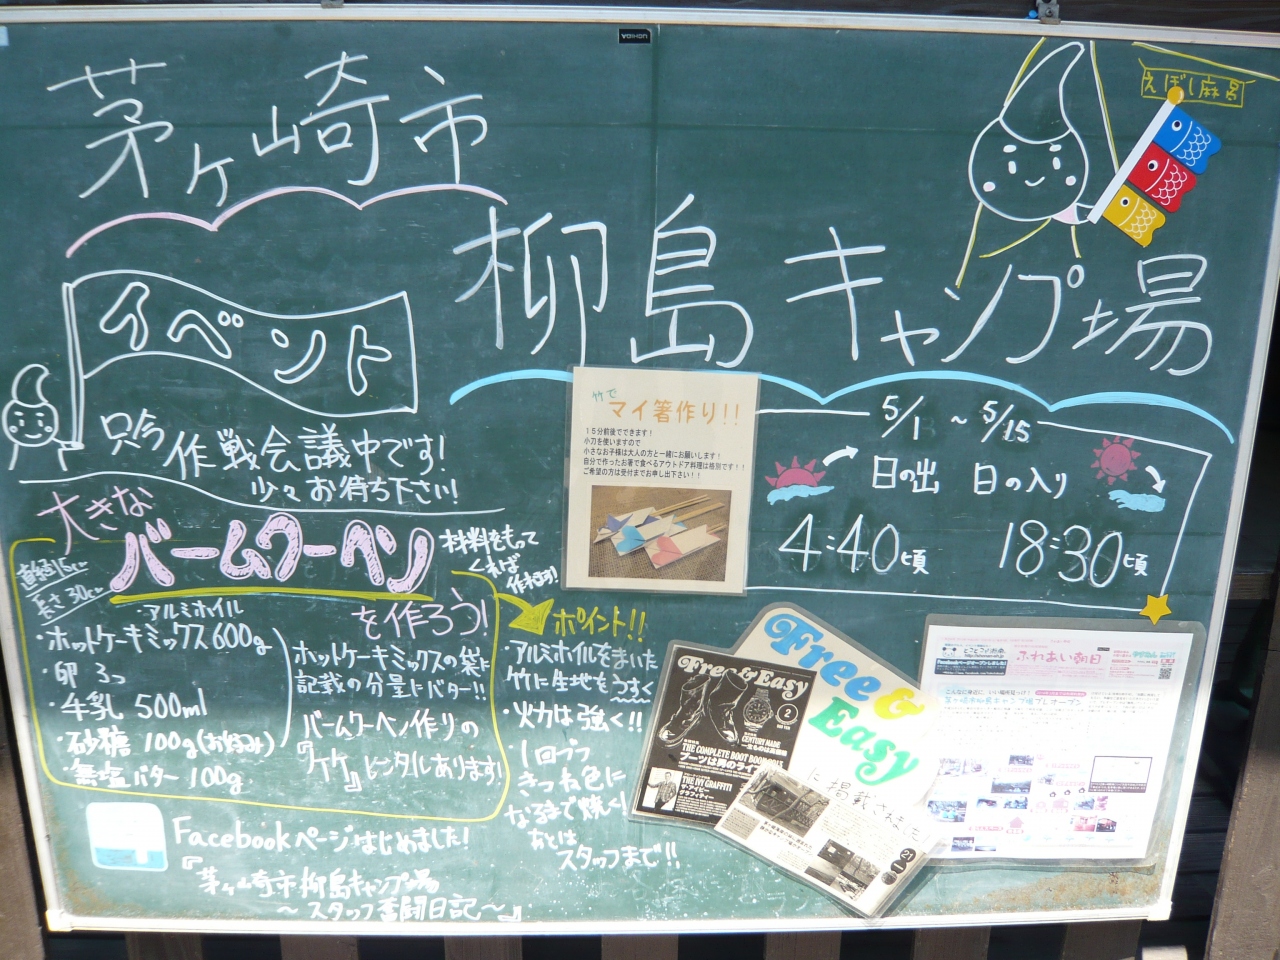 茅ヶ崎市
柳島キャンプ場
えぼし麻呂
イベント
只今作戦会議中です!
少々お待ち下さい!
大きな
バームクーヘン
を作ろう!
材料をもって
くれば
作れます!
長さ30cm
・アルミホイル
・ホットケーキミックス600g
・卵 3つ
・牛乳 500ml
・砂糖 100g(お好み)
・無塩バター 100g
ホットケーキミックスの袋に
記載の分量にバター!!
バームクーヘン作りの
『竹』レンタルあります!
ポイント!!
・アルミホイルをまいた
竹に生地をうすく
・火力は強く!!
・1回づつ
きつね色に
なるまで焼く!
あとは
スタッフまで!!
Facebookページはじめました!
『茅ヶ崎市柳島キャンプ場
～スタッフ奮闘日記～』
竹で
マイ箸作り!!
15分前後でできます!
小刀を使いますので
小さなお子様は大人の方と一緒にお願いします!
自分で作ったお箸で食べるアウトドア料理は格別です!!
ご希望の方は受付までお申し出下さい!!
5/1 ~ 5/15
日の出 日の入り
4:40頃 18:30頃
Free & Easy
に掲載されました
Free & Easy
2
CENTURY MADE
THE COMPLETE BOOT BOOK
ブーツは男のライ
THE IVY GRAFFITI
ザ・アイビー
グラフィティー
ふれあい朝日